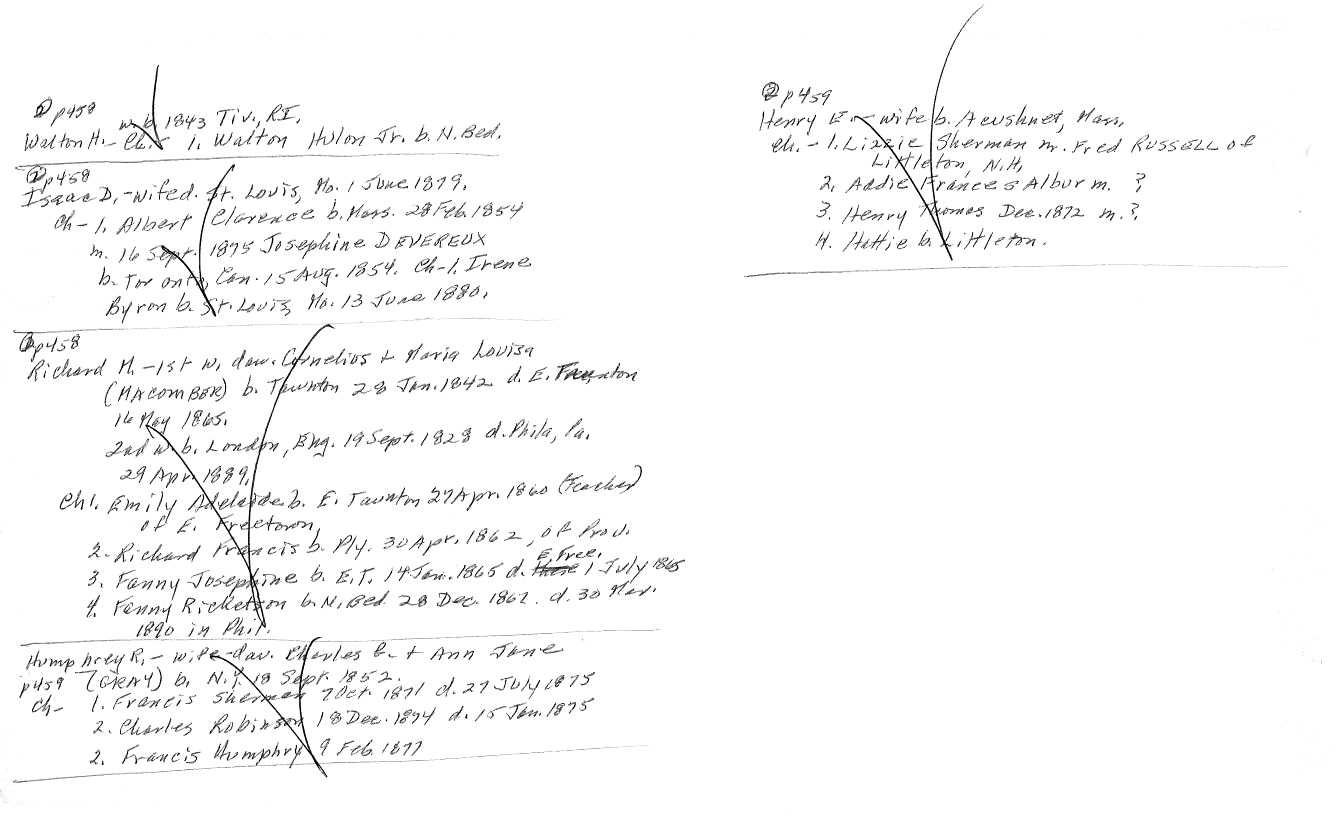 ① p458
w. b. 1843 Tiv., RI.
Walton H. - Ch. - 1. Walton Hulon Jr. b. N. Bed.
① p458
Isaac D. - wife d. St. Louis, Mo. 1 June 1879.
Ch - 1. Albert Clarence b. Mass. 28 Feb. 1854
m. 16 Sept. 1875 Josephine DEVEREUX
b. Toronto, Can. 15 Aug. 1854. Ch - 1. Irene
Byron b. St. Louis, Mo. 13 June 1880.
① p458
Richard M. - 1st w. dau. Cornelius + Maria Louisa
(MACOMBER) b. Taunton 28 Jan. 1842 d. E. Taunton
16 May 1865.
2nd w. b. London, Eng. 19 Sept. 1828 d. Phila, Pa.
29 Apr. 1889.
Ch 1. Emily Adelaide b. E. Taunton 27 Apr. 1860 (Teacher)
of E. Freetown,
2. Richard Francis b. Ply. 30 Apr. 1862, of Prov.
E. Free.
3. Fanny Josephine b. E. T. 14 Jan. 1865 d. there 1 July 1865
4. Fanny Ricketson b. N. Bed. 28 Dec. 1862. d. 30 Mar.
1890 in Phil.
Humphrey R. - wife - dau. Charles G. + Ann Jane
p459 (GRAY) b. N.Y. 18 Sept. 1852.
Ch - 1. Francis Sherman 7 Oct. 1871 d. 27 July 1875
2. Charles Robinson 18 Dec. 1874 d. 15 Jan. 1875
2. Francis Humphry 9 Feb. 1877
② p459
Henry E. - wife b. Acushnet, Mass.
Ch. - 1. Lizzie Sherman m. Fred RUSSELL of
Littleton, N.H.
2. Addie Frances Albur m. ?
3. Henry Thomas Dec. 1872 m. ?
4. Hattie b. Littleton.